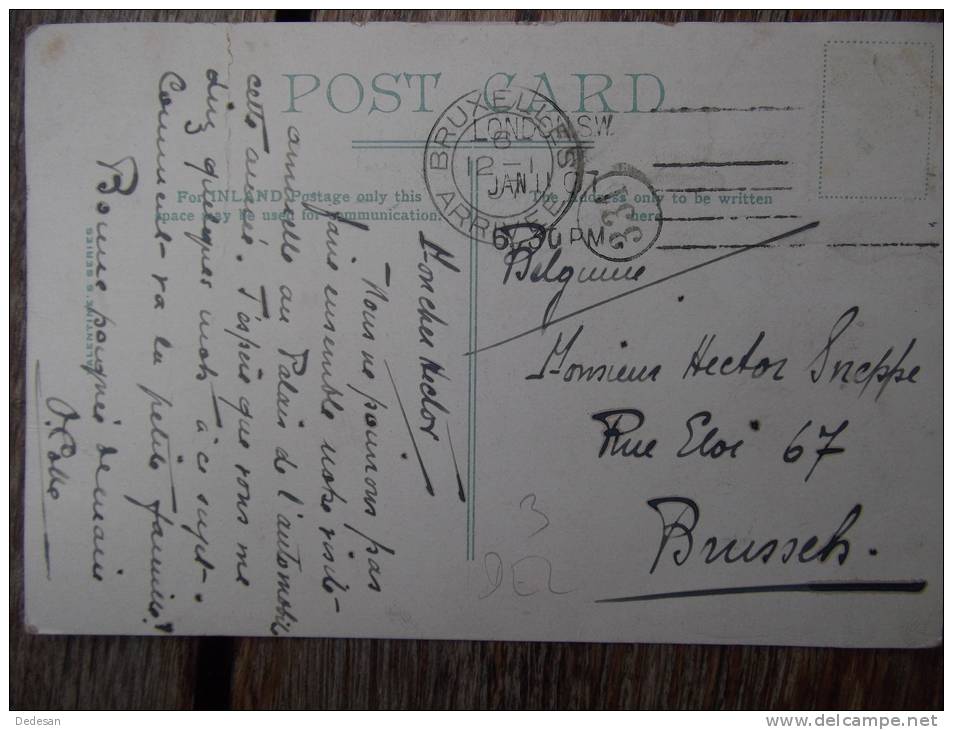 POST CARD
For INLAND Postage only this
space may be used for communication.
The Address only to be written
here
VALENTINE'S SERIES
BRUXELLES
ARRIVEE
12-1
LONDON. S.W.
JAN 11 07
6.30 PM
Belgium
Monsieur Hector Sneppe
Rue Eloi 67
Brussels.
Moncher Hector
Nous ne pourrons pas
faire ensemble notre visite
annuelle au Palais de l'automobile
cette année. J'espère que vous me
direz quelques mots à ce sujet.
Comment va la petite famine?
Bonne poignée de main
3
Dedesan
www.delcampe.net